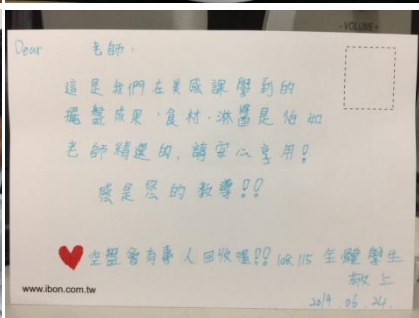 - VOLUME +
Dear 老師:
這是我們在美感課學到的
擺盤成果,食材、淋醬是怡如
老師精選的,請安心享用!
感是您的教導!!
空盤會有專人回收喔!! 108.115 全體學生
敬上
www.ibon.com.tw
2019.06.24.